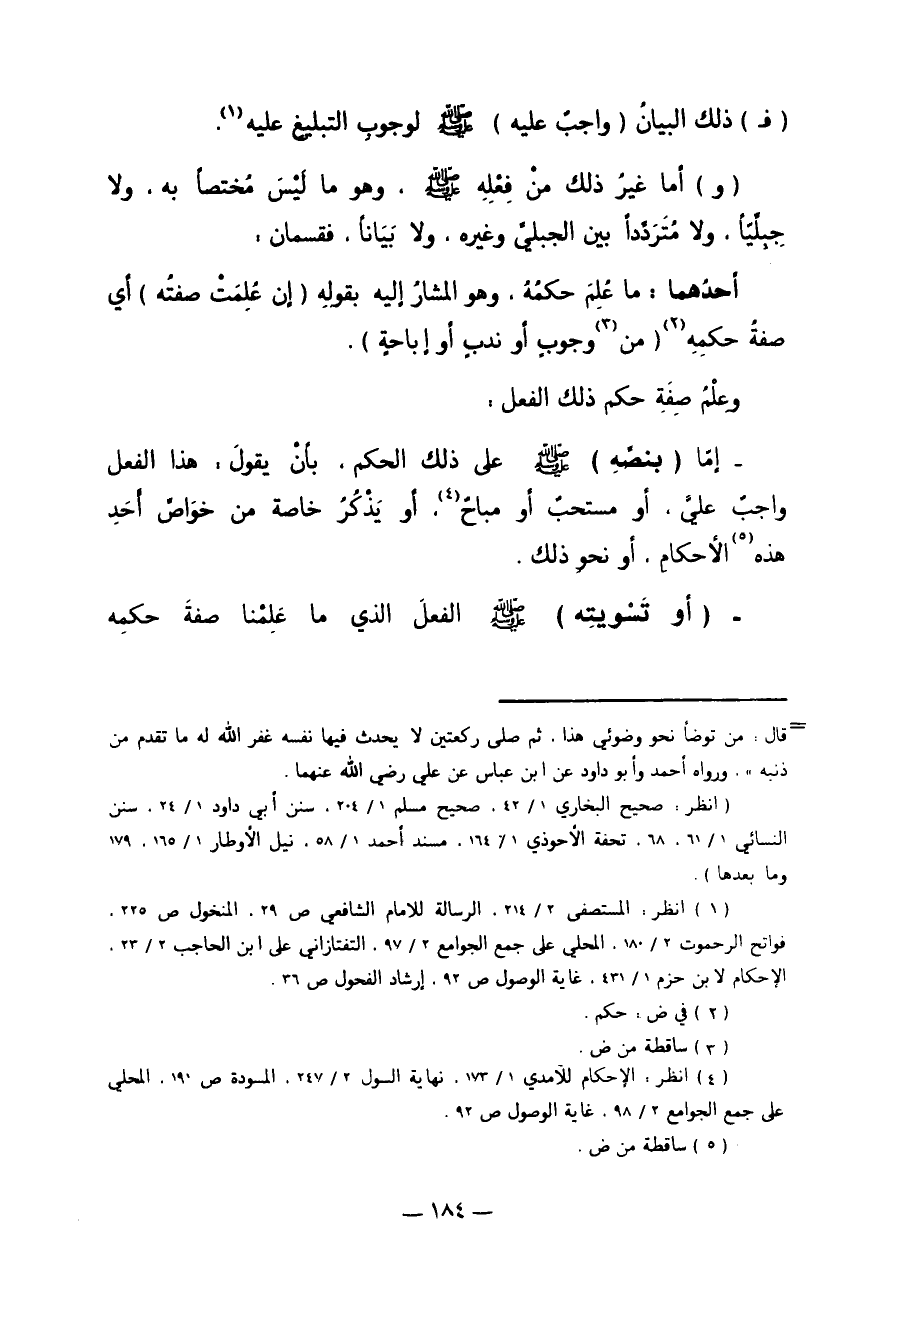 ( فـ ) ذلك البيانُ ( واجبٌ عليه ) ﷺ لوجوبِ التبليغِ عليه(١).
( و ) أما غيرُ ذلك منْ فِعْلِهِ ﷺ ، وهو ما لَيْسَ مُختصاً به ، ولا
جِبِلِّيَاً ، ولا مُتَرَدِّداً بين الجبليّ وغيره ، ولا بَيَاناً ، فقسمان :
أحدُهما : ما عُلِمَ حكمُهُ ، وهو المشارُ إليه بقولِهِ ( إن عُلِمَتْ صفتُه ) أي
صفةُ حكمِهِ(٢)( من(٣)وجوبٍ أو ندبٍ أو إباحةٍ ) .
وعِلْمُ صِفَةِ حكم ذلك الفعل :
ـ إمّا ( بنصّهِ ) ﷺ على ذلك الحكم ، بأنْ يقولَ : هذا الفعل
واجبٌ عليَّ ، أو مستحبٌ أو مباحٌ(٤)، أو يَذْكُرُ خاصة من خوَاصّ أحَدِ
هذه(٥)الأحكامِ ، أو نحوِ ذلك .
ـ ( أو تَسْويتِه ) ﷺ الفعلَ الذي ما عَلِمْنا صفةَ حكمِه
= قال : من توضأ نحو وضوئي هذا ، ثم صلى ركعتين لا يحدث فيها نفسه غفر الله له ما تقدم من
ذنبه » ، ورواه أحمد وأبو داود عن ابن عباس عن علي رضي الله عنهما .
( انظر : صحيح البخاري ١ / ٤٢ ، صحيح مسلم ١ / ٢٠٤ ، سنن أبي داود ١ / ٢٤ ، سنن
النسائي ١ / ٦١ ، ٦٨ ، تحفة الأحوذي ١ / ١٦٤ ، مسند أحمد ١ / ٥٨ ، نيل الأوطار ١ / ١٦٥ ، ١٧٩
وما بعدها ) .
( ١ ) انظر : المستصفى ٢ / ٢١٤ ، الرسالة للامام الشافعي ص ٢٩ ، المنخول ص ٢٢٥ ،
فواتح الرحموت ٢ / ١٨٠ ، المحلي على جمع الجوامع ٢ / ٩٧ ، التفتازاني على ابن الحاجب ٢ / ٢٣ ،
الإحكام لابن حزم ١ / ٤٣١ ، غاية الوصول ص ٩٢ ، إرشاد الفحول ص ٣٦ .
( ٢ ) في ض : حكم .
( ٣ ) ساقطة من ض .
( ٤ ) انظر : الإحكام للآمدي ١ / ١٧٣ ، نهاية السول ٢ / ٢٤٧ ، المسودة ص ١٩٠ ، المحلي
على جمع الجوامع ٢ / ٩٨ ، غاية الوصول ص ٩٢ .
( ٥ ) ساقطة من ض .
— ١٨٤ —